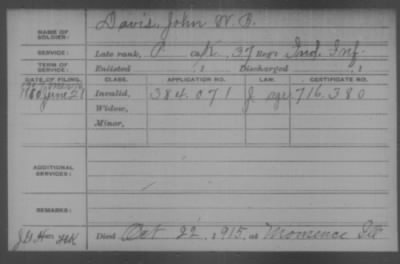 NAME OF SOLDIER: Davis, John W. B.
SERVICE: Late rank, P Co. K, 37 Reg't Ind. Inf.
TERM OF SERVICE: Enlisted , 1 Discharged , 1
DATE OF FILING. CLASS. APPLICATION NO. LAW. CERTIFICATE NO.
1880 June 21 Invalid, 384.071 J age 716.380
Widow,
Minor,
ADDITIONAL SERVICES:
REMARKS:
Died Oct 22, 1915, at Momence Ill